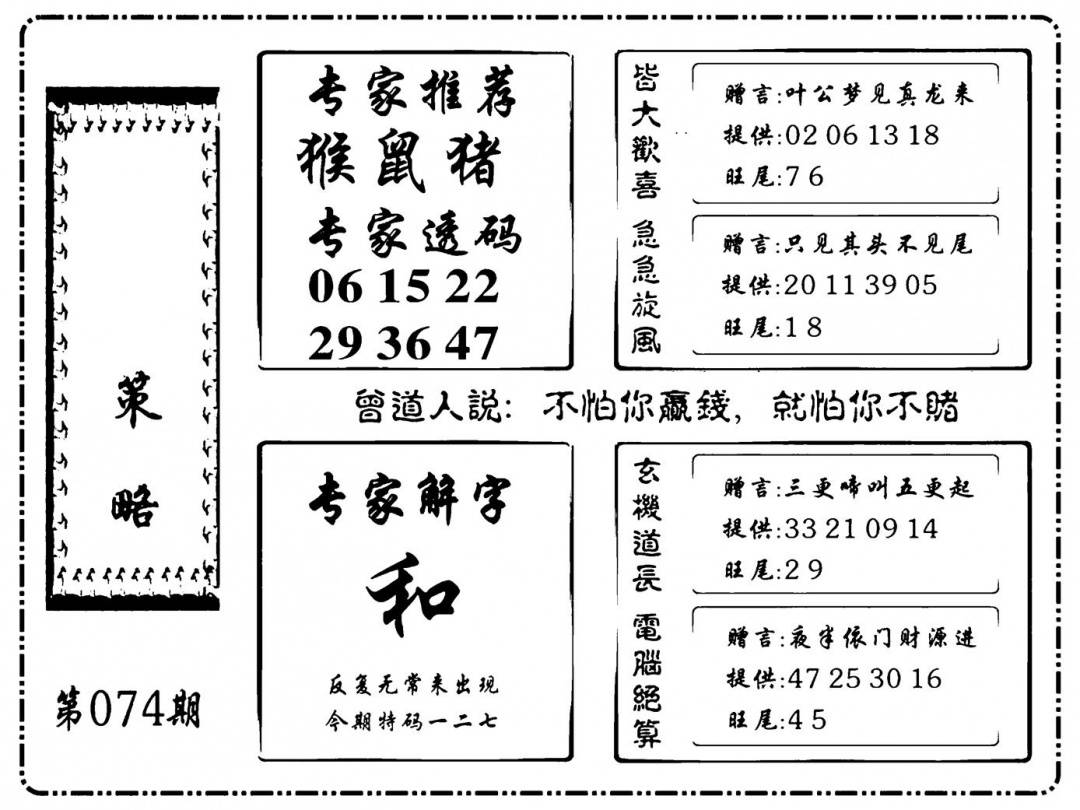 策略
第074期
专家推荐
猴鼠猪
专家透码
06 15 22
29 36 47
皆大歡喜
赠言:叶公梦见真龙来
提供:02 06 13 18
旺尾:7 6
急急旋風
赠言:只见其头不见尾
提供:20 11 39 05
旺尾:1 8
曾道人説: 不怕你贏錢, 就怕你不賭
专家解字
和
反复无常来出现
今期特码一二七
玄機道長
赠言:三更啼叫五更起
提供:33 21 09 14
旺尾:2 9
電腦絕算
赠言:夜半依门财源进
提供:47 25 30 16
旺尾:4 5